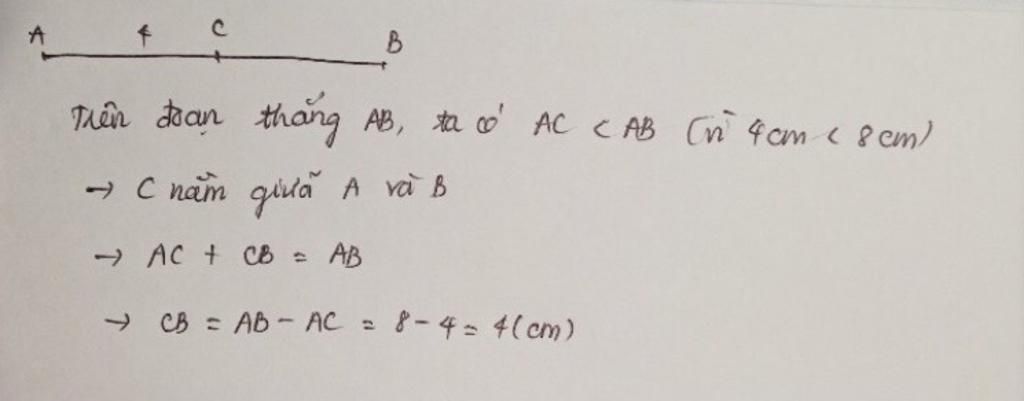 A 4 C B
Trên đoạn thẳng AB, ta có AC < AB (vì 4cm < 8cm)
→ C nằm giữa A và B
→ AC + CB = AB
→ CB = AB - AC = 8 - 4 = 4(cm)